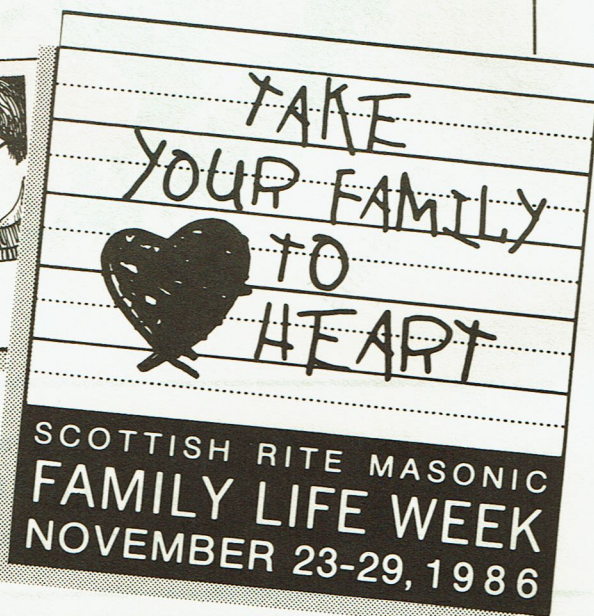 TAKE
YOUR FAMILY
TO
HEART
SCOTTISH RITE MASONIC
FAMILY LIFE WEEK
NOVEMBER 23-29, 1986